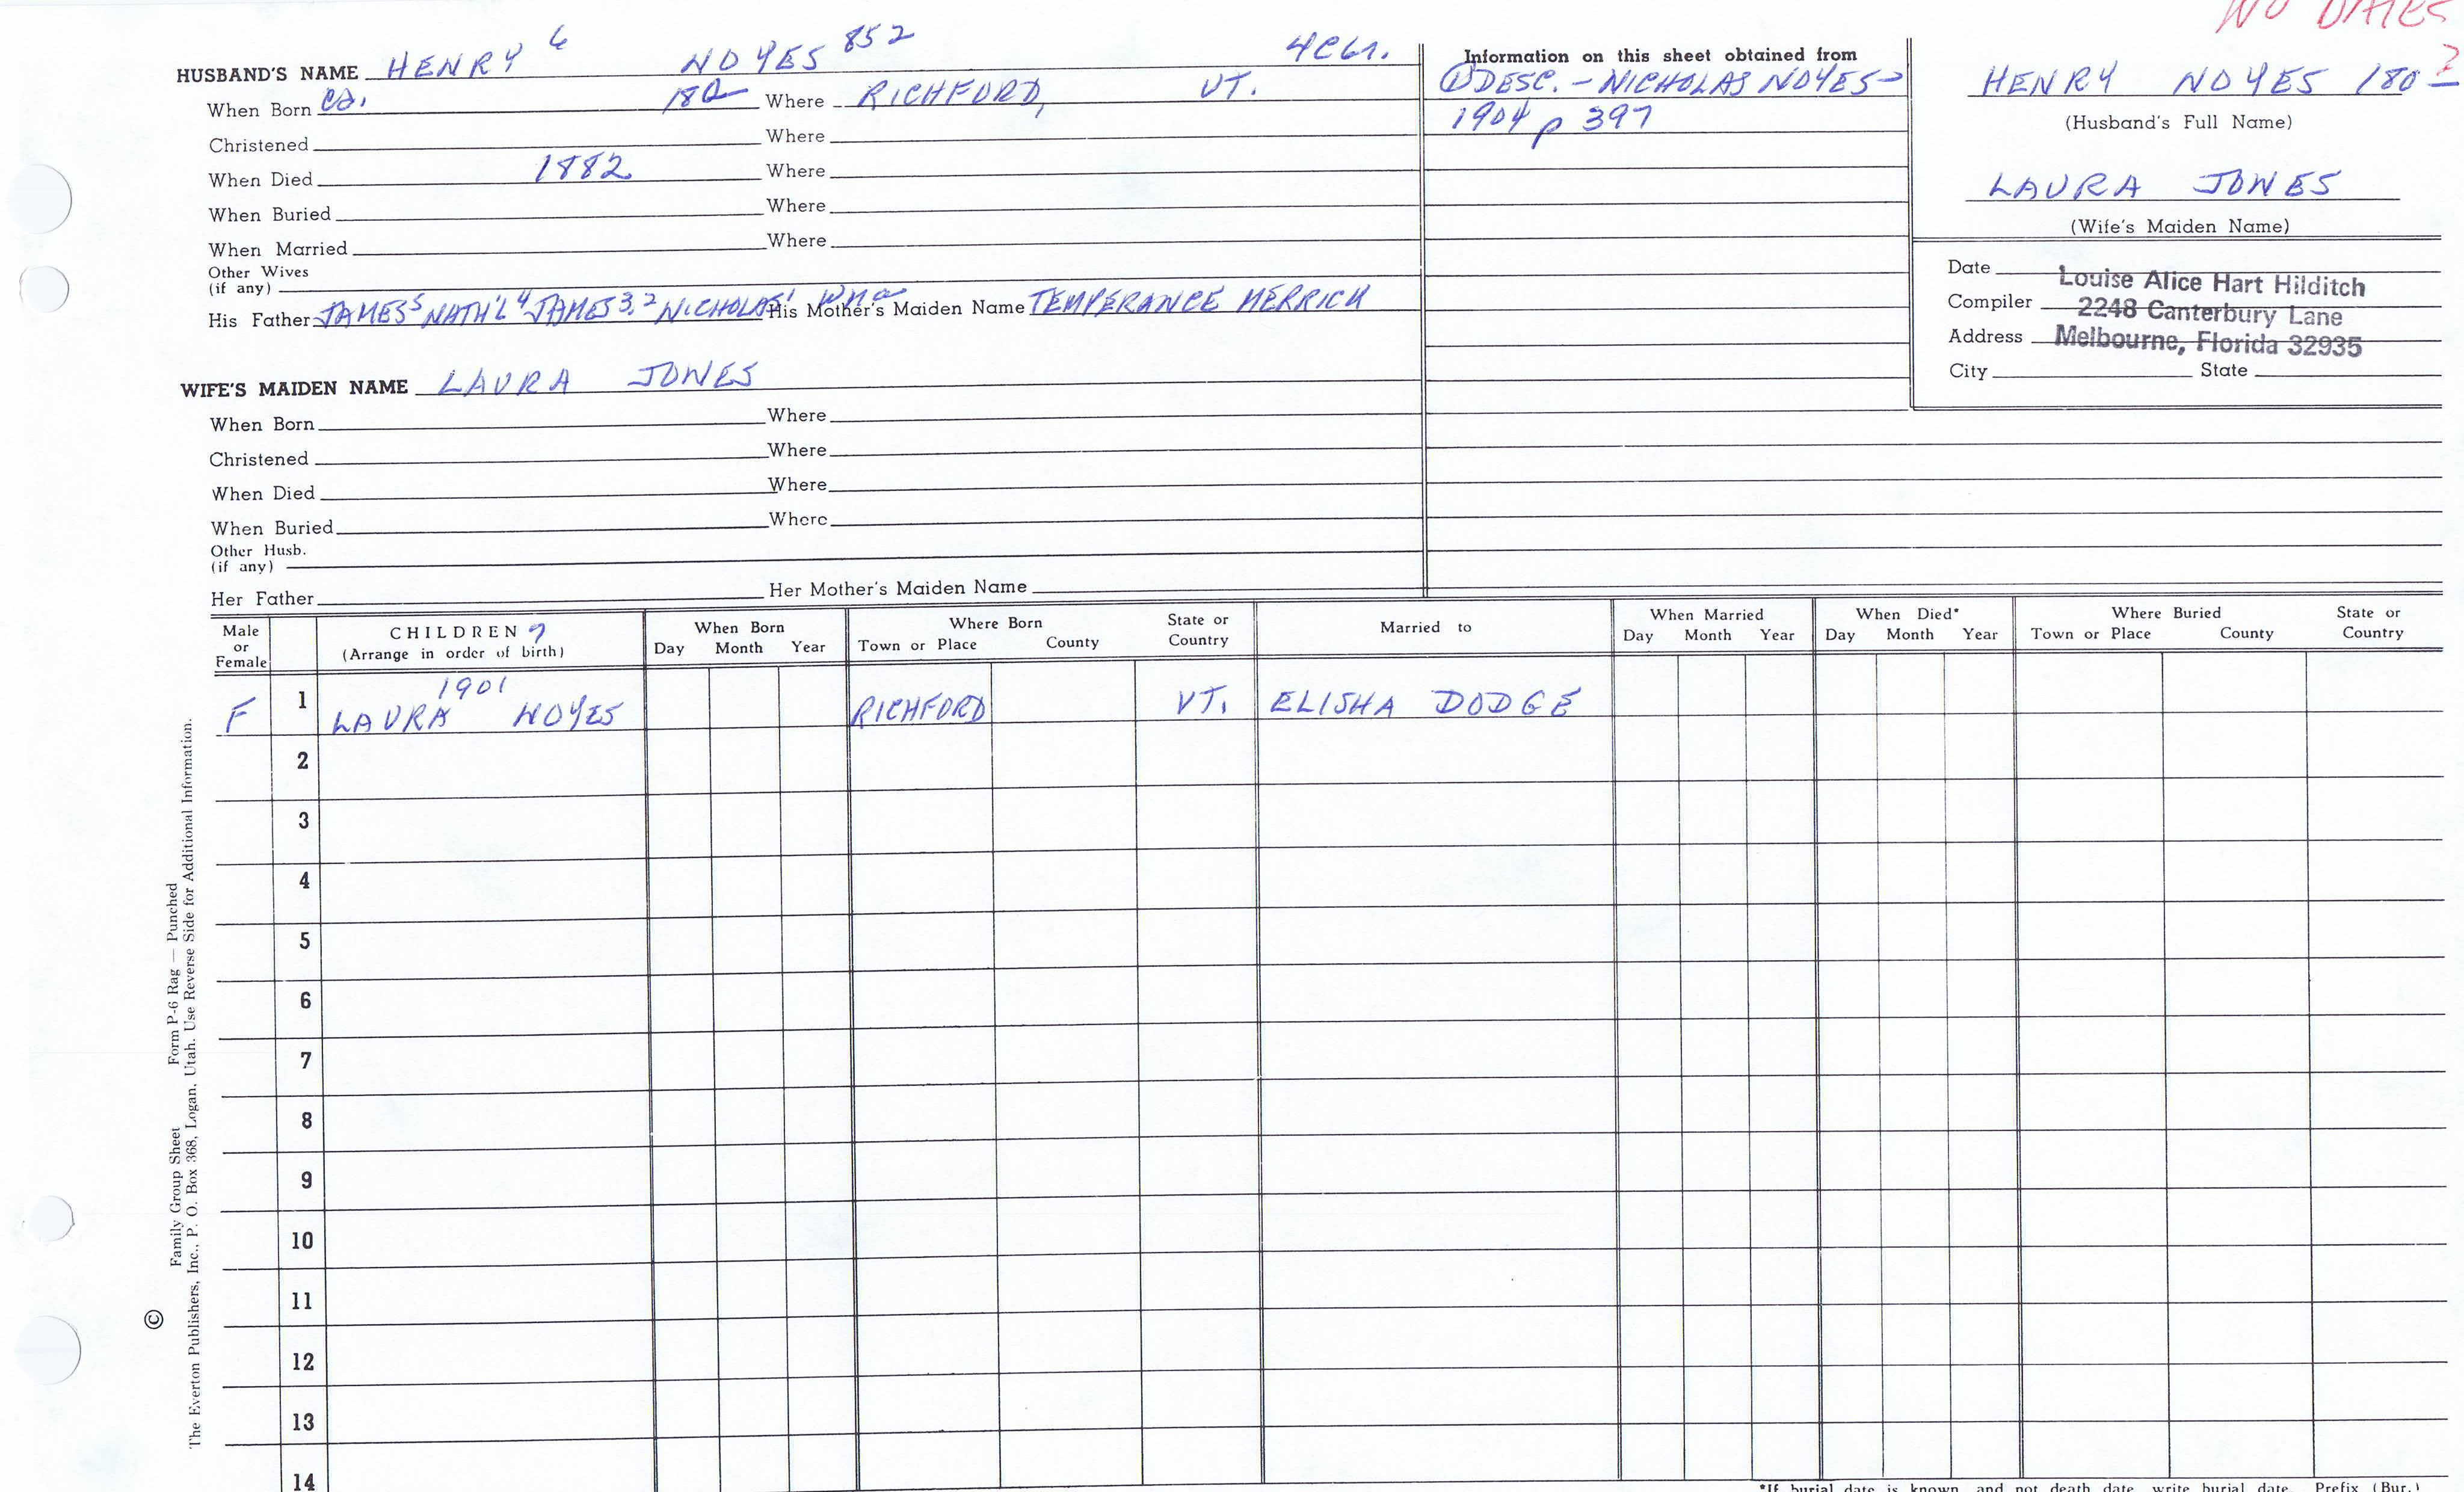 NO DATES
?
HUSBAND'S NAME HENRY 6 NOYES 852 4
When Born ca. 180 Where RICHFORD, VT.
Christened Where
When Died 1882 Where
When Buried Where
When Married Where
Other Wives
(if any)
His Father JAMES5 NATH'L4 JAMES3,2 NICHOLAS1 Wm His Mother's Maiden Name TEMPERANCE MERRICK
WIFE'S MAIDEN NAME LAURA JONES
When Born Where
Christened Where
When Died Where
When Buried Where
Other Husb.
(if any)
Her Father Her Mother's Maiden Name
Information on this sheet obtained from
① DESC. - NICHOLAS NOYES -
1904 p 397
HENRY NOYES 180
(Husband's Full Name)
LAURA JONES
(Wife's Maiden Name)
Date
Louise Alice Hart Hilditch
Compiler 2248 Canterbury Lane
Address Melbourne, Florida 32935
City State
Male or Female
CHILDREN ?
(Arrange in order of birth)
When Born
Day Month Year
Where Born
Town or Place County
State or Country
Married to
When Married
Day Month Year
When Died*
Day Month Year
Where Buried
Town or Place County
State or Country
1901
F 1 LAURA NOYES RICHFORD VT. ELISHA DODGE
2
3
4
5
6
7
8
9
10
11
12
13
14
*If burial date is known and not death date, write burial date. Prefix (Bur.)
©
Family Group Sheet Form P-6 Rag — Punched
The Everton Publishers, Inc., P. O. Box 368, Logan, Utah. Use Reverse Side for Additional Information.